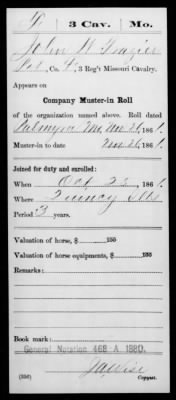 F 3 Cav. Mo.
John W Frazier
Co. F, 3 Reg't Missouri Cavalry.
Appears on
Company Muster-in Roll
of the organization named above. Roll dated
Palmyra Mo, Nov 26, 1861.
Muster-in to date Nov 26, 1861.
Joined for duty and enrolled:
When Oct 22, 1861.
Where Quincy Ills
Period 3 years.
Valuation of horse, $ 100
Valuation of horse equipments, $ 100
Remarks:
Book mark:
General Notation 468 A 1880.
(356) Copyist.